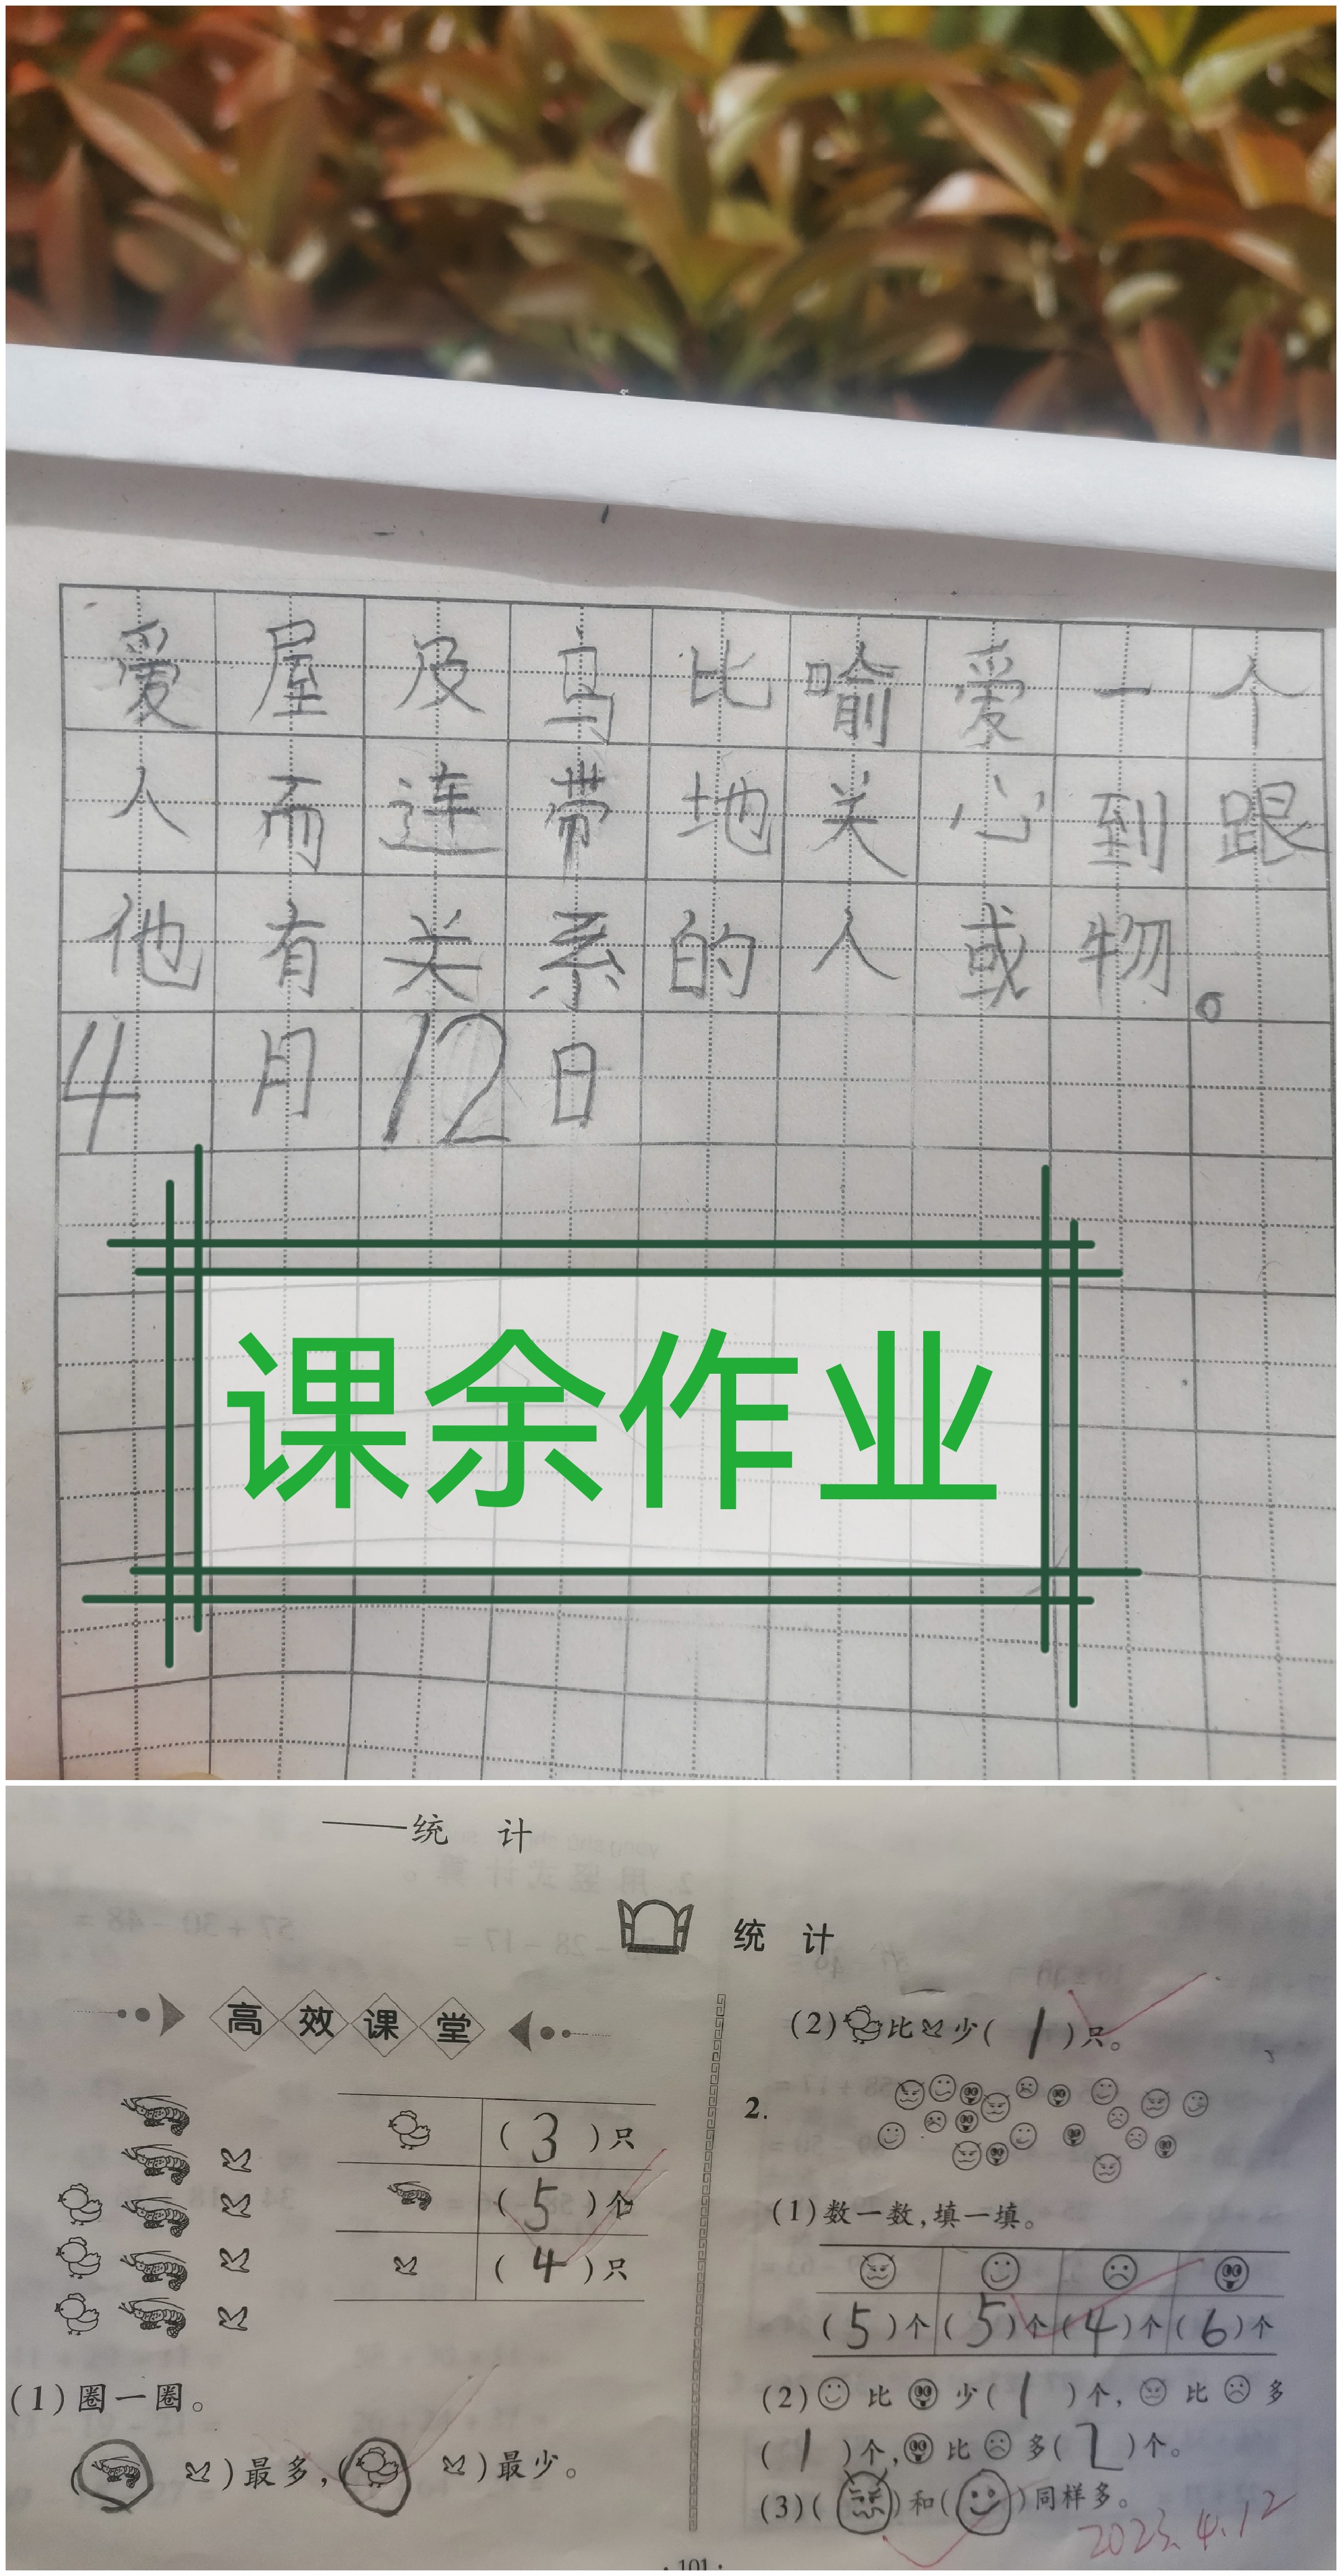 爱屋及乌比喻爱一个
人而连带地关心到跟
他有关系的人或物。
4月12日
课余作业
——统 计
统 计
高效课堂
(3)只
(5)个
(4)只
(1)圈一圈。
( )最多,( )最少。
(2) 比 少(1)只。
2.
(1)数一数,填一填。
(5)个 (5)个 (4)个 (6)个
(2) 比 少(1)个, 比 多
(1)个, 比 多(2)个。
(3)( )和( )同样多。
2023.4.12
·101·